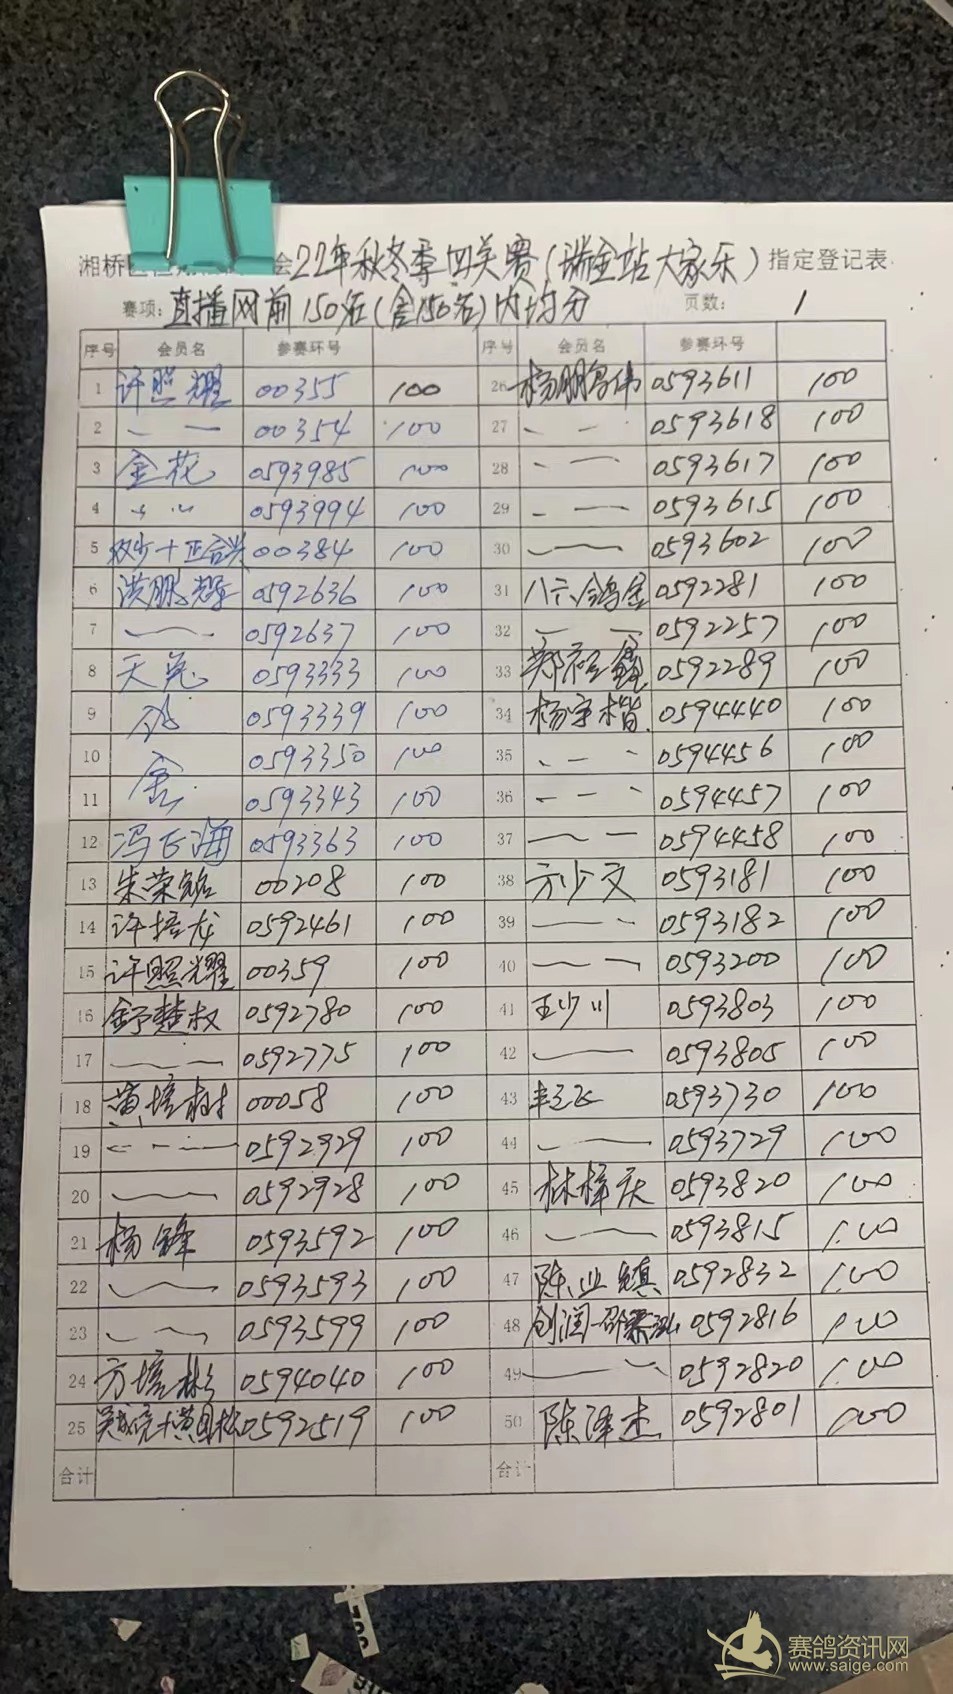 湘桥区 会22年秋冬季四关赛(瑞金站大家乐)指定登记表
赛项:直播网前150名(含150名)内均分 页数: 1
序号 会员名 参赛环号 序号 会员名 参赛环号
1 许照耀 00355 100 26 杨朋 伟 0593611 100
2 — — 00354 100 27 - - 0593618 100
3 金花 0593985 100 28 - — 0593617 100
4 0593994 100 29 - — 0593615 100
5 00384 100 30 — 0593602 100
6 洪鹏辉 0592636 100 31 八六鸽舍 0592281 100
7 — 0592637 100 32 — — 0592257 100
8 天兔 0593333 100 33 郑 鑫 0592289 100
9 0593339 100 34 杨宇楷 0594440 100
10 0593350 100 35 - - - 0594456 100
11 舍 0593343 100 36 - - - 0594457 100
12 冯飞海 0593363 100 37 — — 0594458 100
13 朱荣铭 00208 100 38 方少文 0593181 100
14 许培龙 0592461 100 39 — - 0593182 100
15 许照耀 00359 100 40 — - 0593200 100
16 舒楚叔 0592780 100 41 王少川 0593803 100
17 — — 0592775 100 42 — 0593805 100
18 黄培树 00058 100 43 飞 0593730 100
19 - - — 0592929 100 44 — 0593729 100
20 — 0592928 100 45 林梓庆 0593820 100
21 杨锋 0593592 100 46 — 0593815 100
22 — 0593593 100 47 陈业镇 0592832 100
23 — 0593599 100 48 创润- 0592816 100
24 方培彬 0594040 100 49 — 0592820 100
25 0592519 100 50 陈泽杰 0592801 100
合计 合计
赛鸽资讯网
www.saige.com